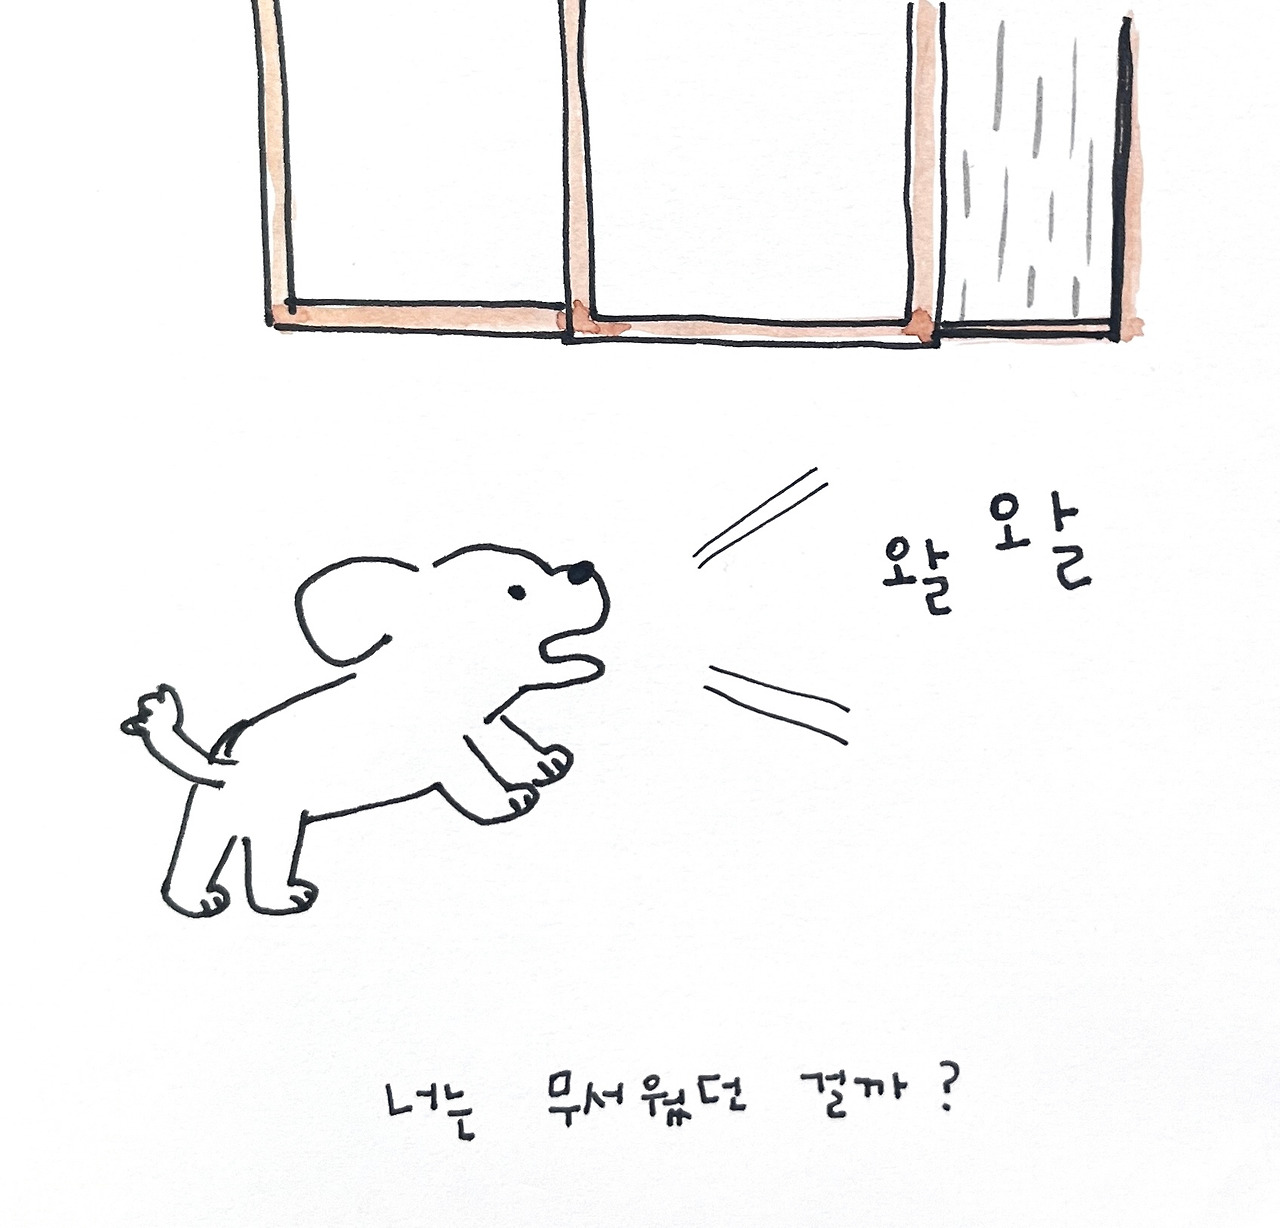 왈 왈
너는 무서웠던 걸까?